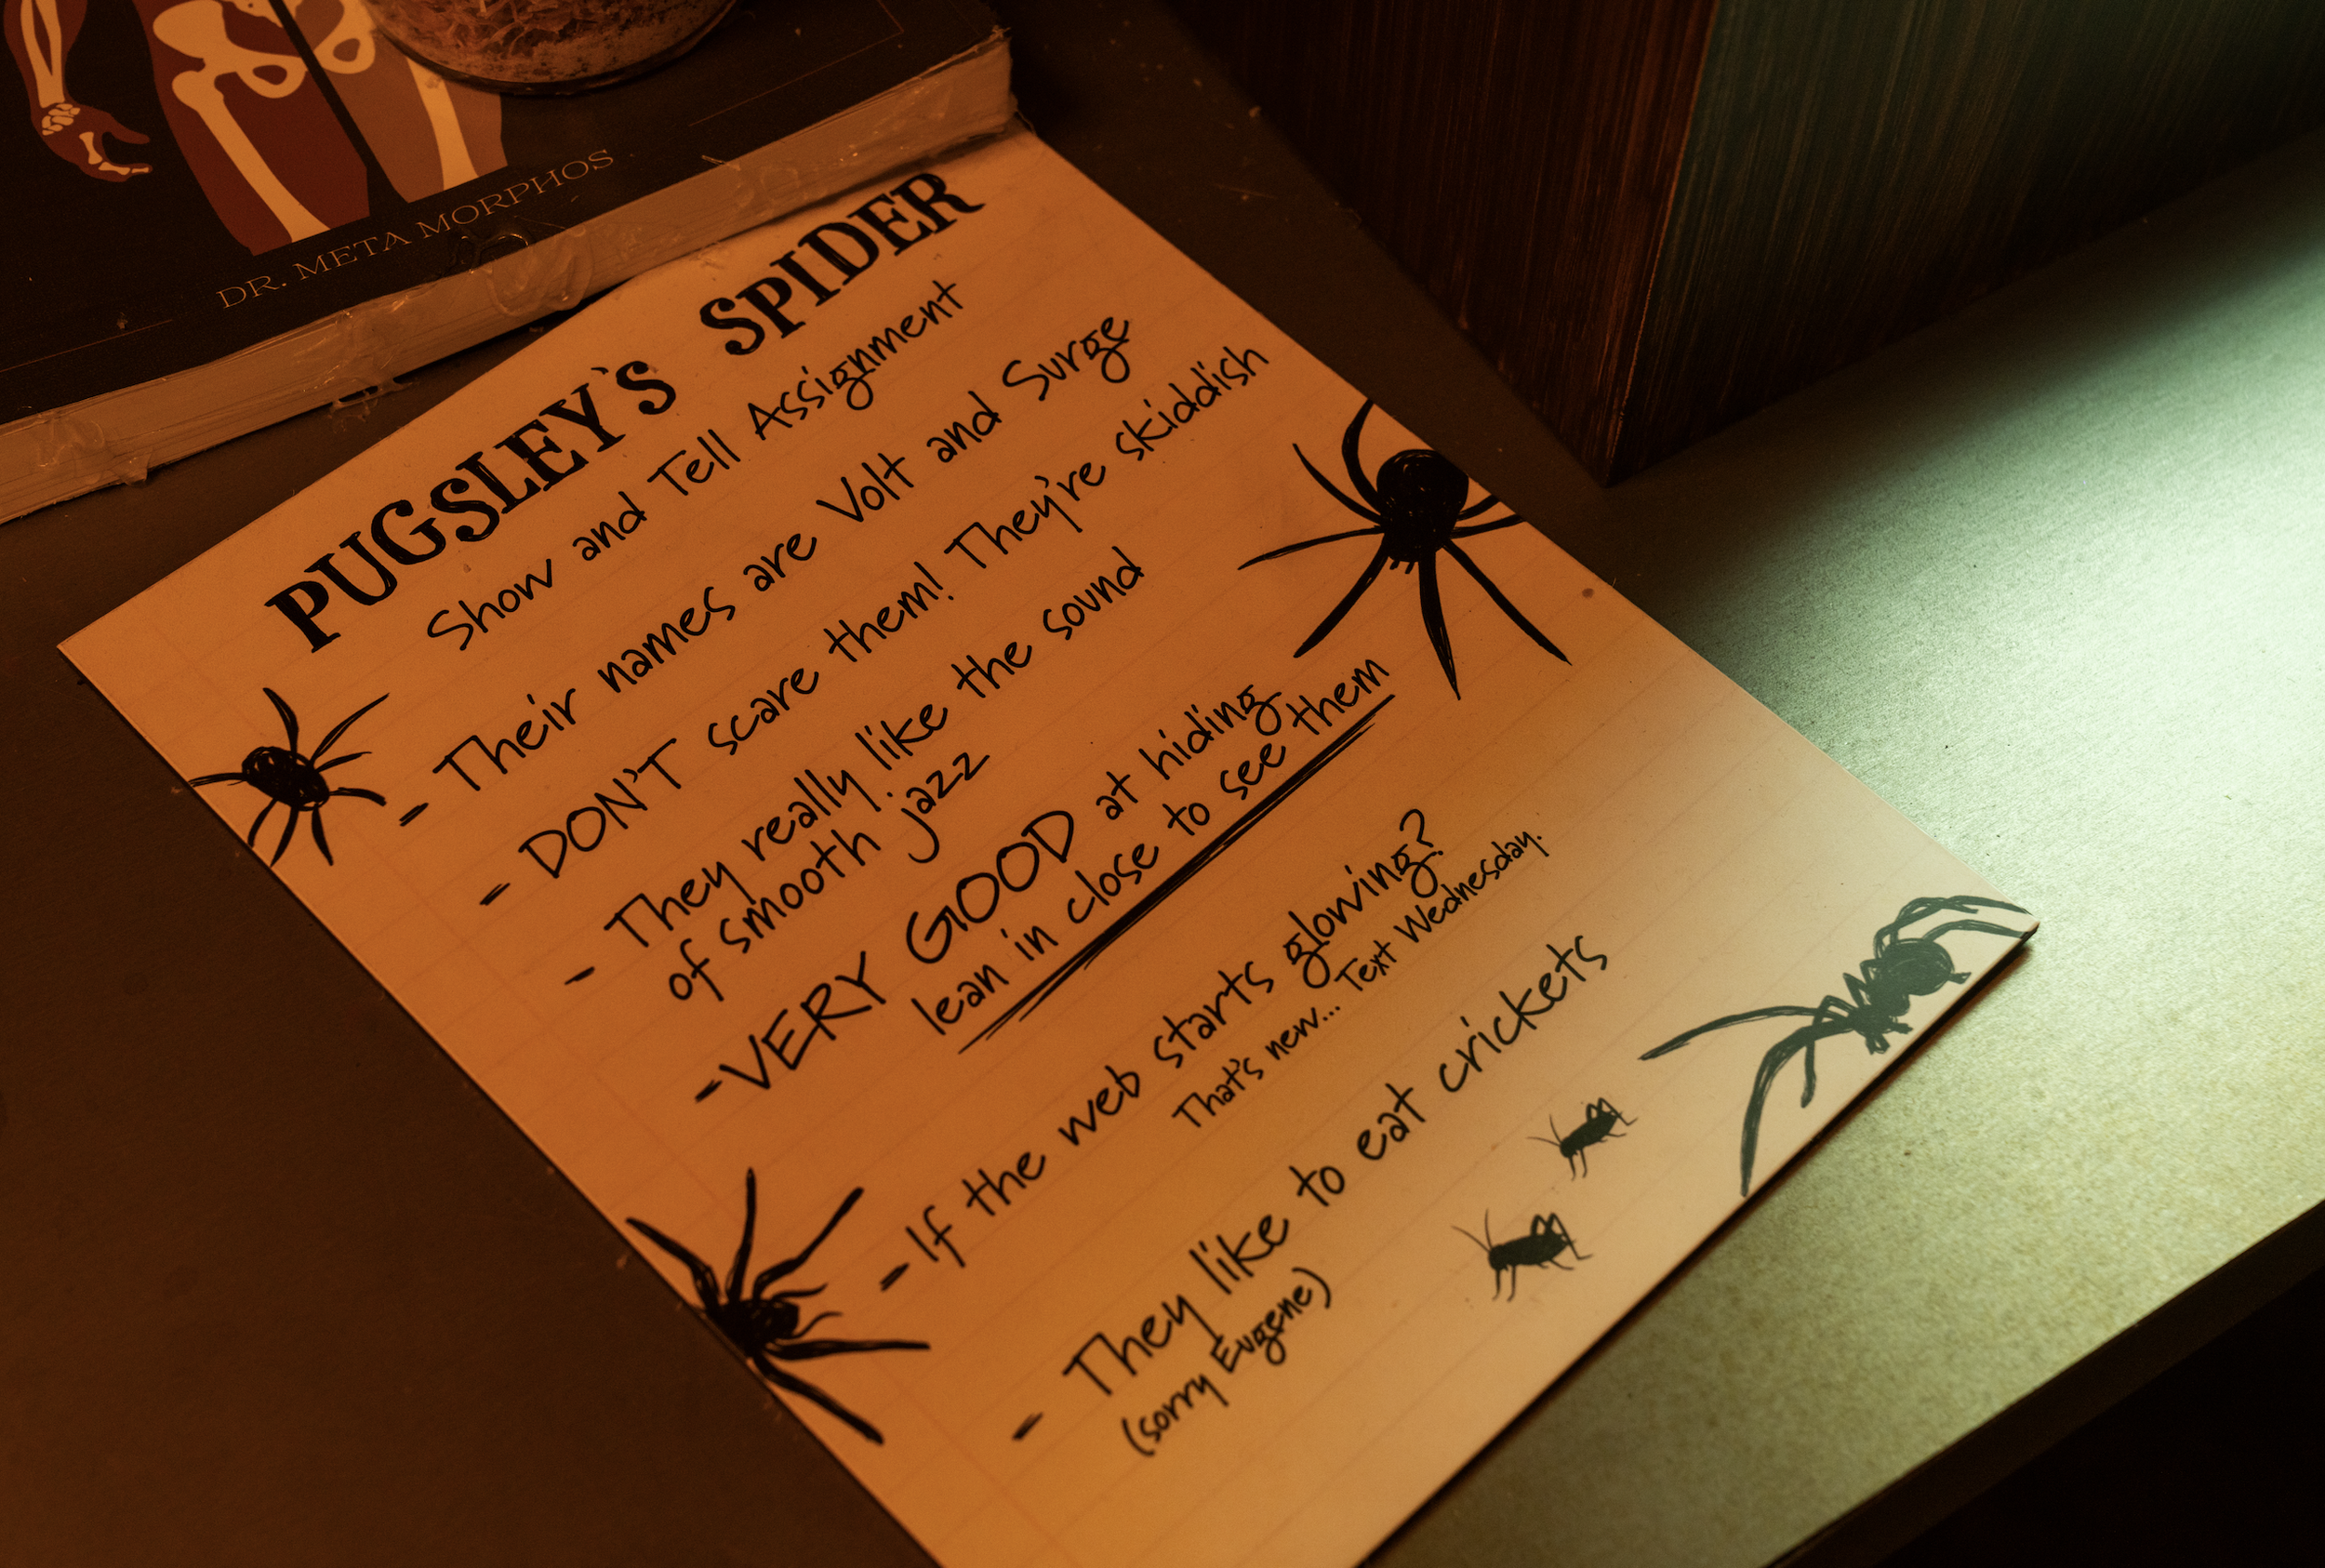 DR. META MORPHOS
PUGSLEY'S SPIDER
Show and Tell Assignment
- Their names are Volt and Surge
- DON'T scare them! They're skiddish
- They really like the sound
of smooth jazz
- VERY GOOD at hiding
lean in close to see them
- If the web starts glowing?
That's new... Text Wednesday.
- They like to eat crickets
(sorry Eugene)